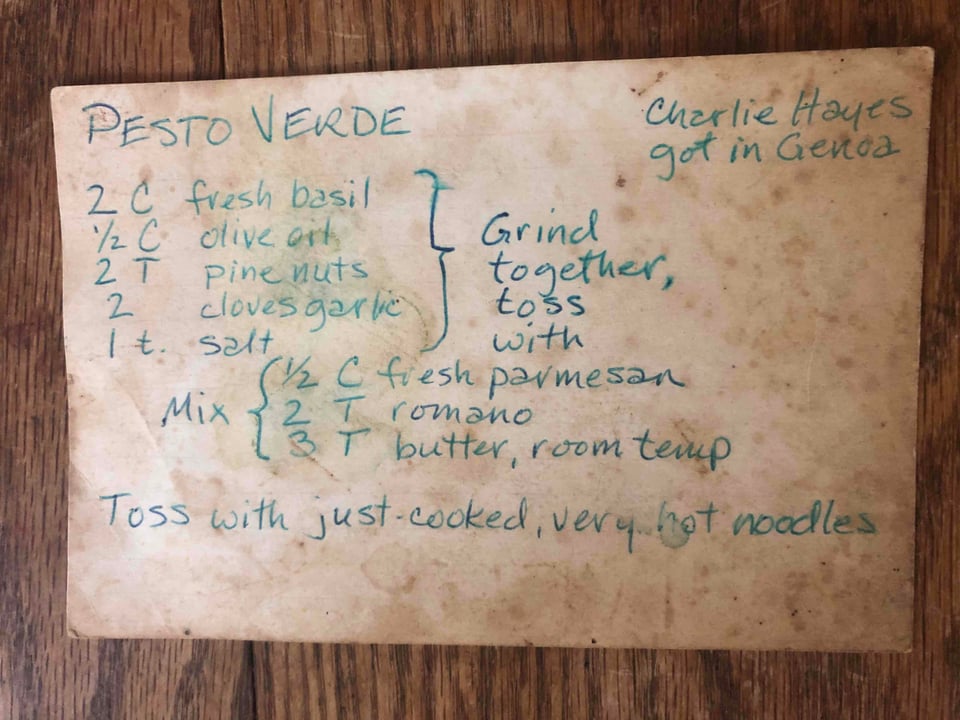 PESTO VERDE
Charlie Hayes
got in Genoa
2 C fresh basil
½ C olive oil
2 T pine nuts
2 cloves garlic
1 t. salt
Grind
together,
toss
with
Mix
½ C fresh parmesan
2 T romano
3 T butter, room temp
Toss with just-cooked, very hot noodles